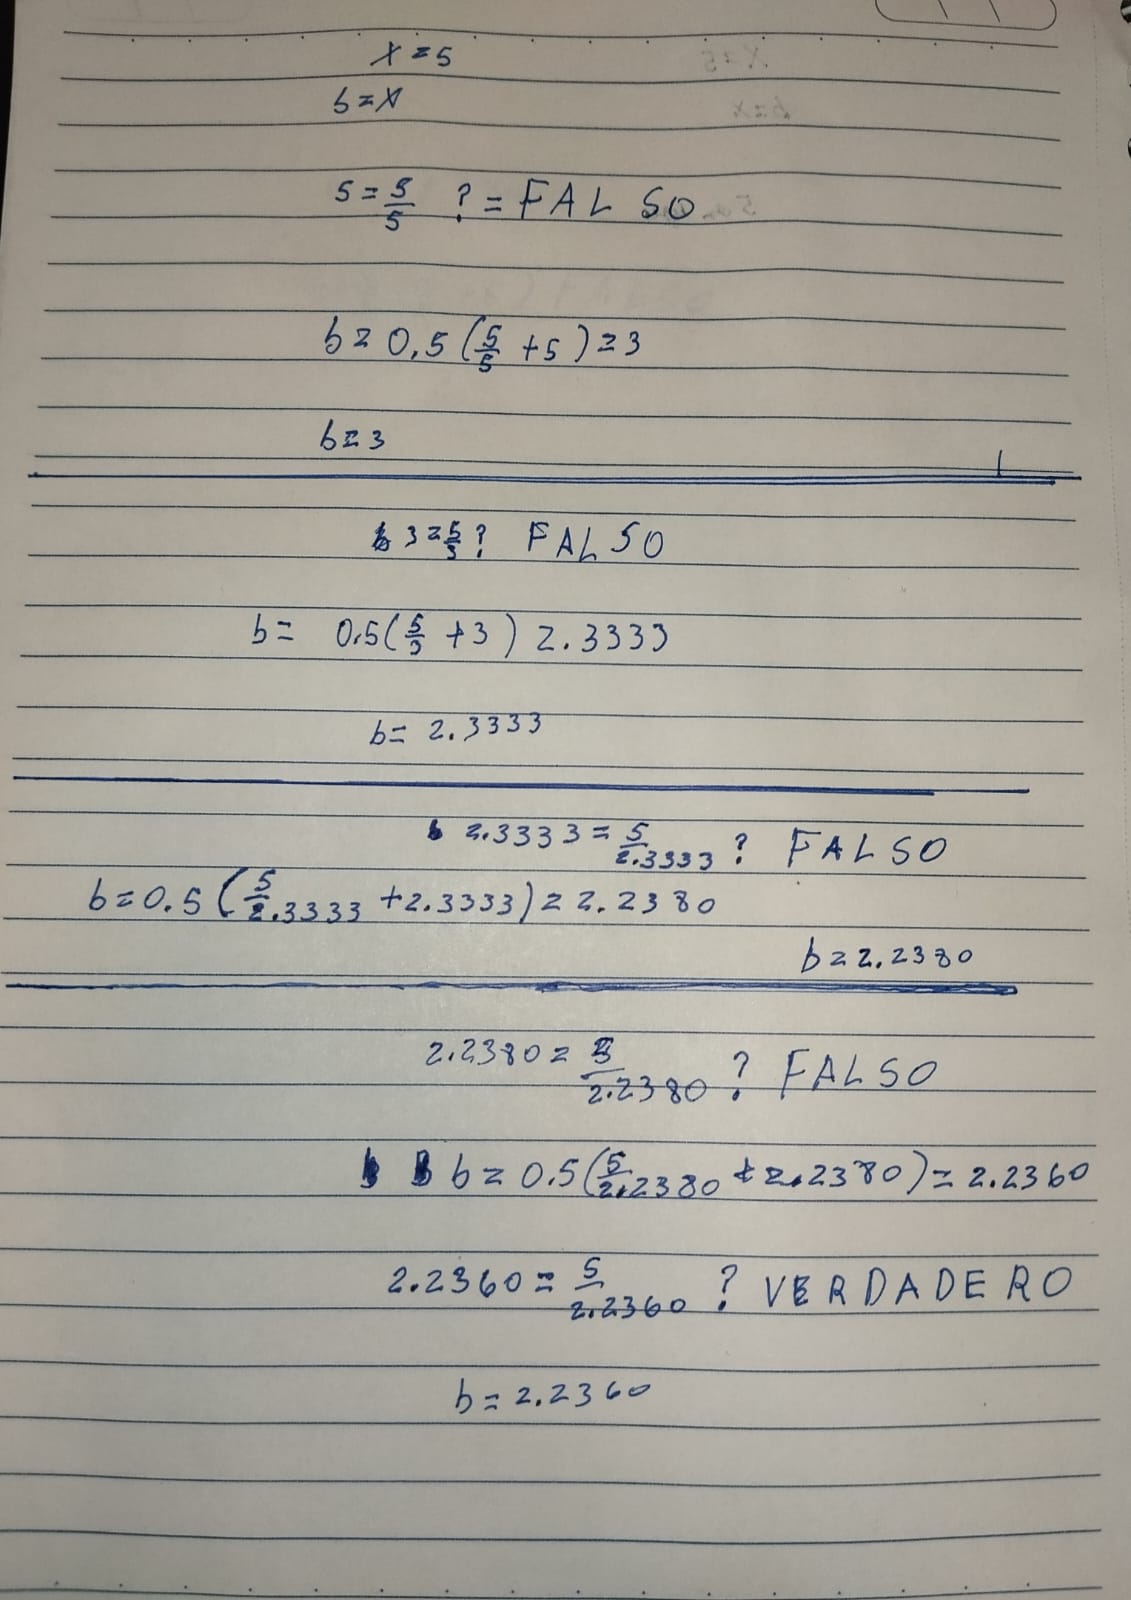 x = 5
b = x
5 = 5/5 ? = FALSO
b = 0,5 (5/5 + 5) = 3
b = 3
3 = 5/3 ? FALSO
b = 0.5 (5/3 + 3) 2.3333
b = 2.3333
2.3333 = 5/2.3333 ? FALSO
b = 0.5 (5/2.3333 + 2.3333) = 2.2380
b = 2.2380
2.2380 = 5/2.2380 ? FALSO
b = 0.5 (5/2.2380 + 2.2380) = 2.2360
2.2360 = 5/2.2360 ? VERDADERO
b = 2.2360